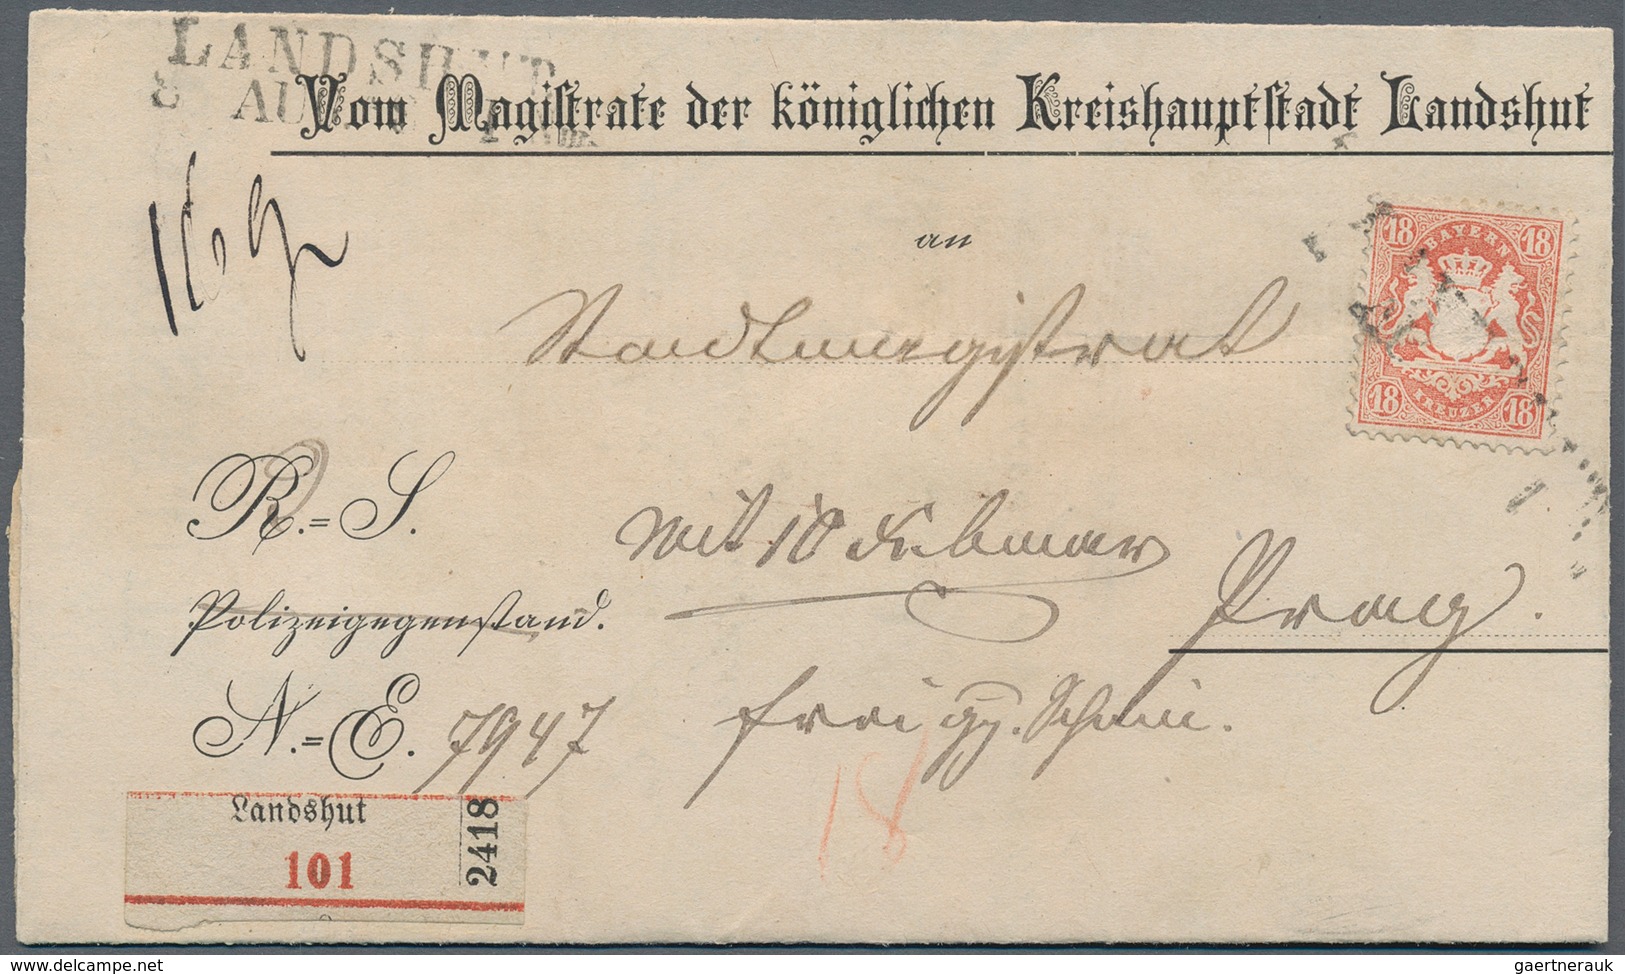 LANDSHUT
8 AU
Vom Magistrate der königlichen Kreishauptstadt Landshut
an
Stadtmagistrat
18
18
BAYERN
KREUZER
18
18
R.=S.
mit 10
Prag.
Polizeigegenstand.
N.=E. 7947
frei gg. Schein.
18
Landshut
101
2418
www.delcampe.net
gaertnerauk